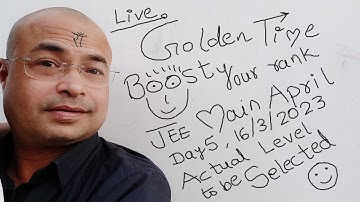 Live.
Golden Time
Boosty Your rank
JEE Main April
Day5, 16/3/2023
Actual Level
to be Selected